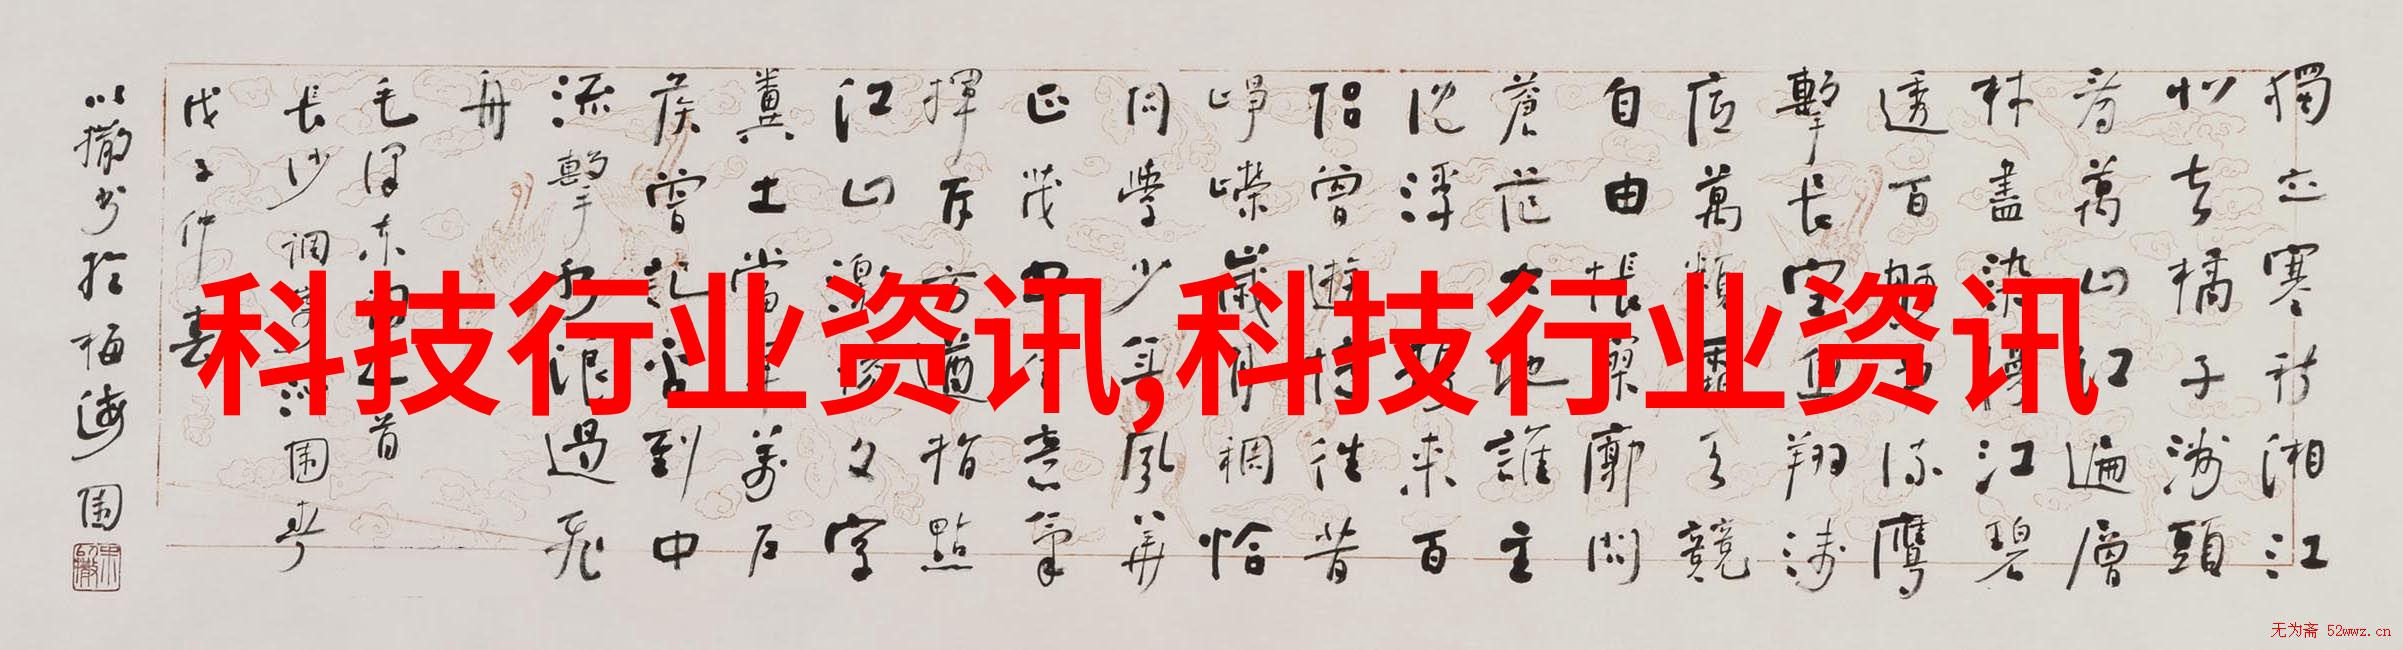 獨立寒秋湘江
北去橘子洲頭
看萬山紅遍層
林盡染漫江碧
透百舸爭流鷹
擊長空魚翔淺
底萬類霜天競
自由悵寥廓問
蒼茫大地誰主
沈浮攜來百
侶曾遊憶往昔
崢嶸歲月稠恰
同學少年風華
正茂書生意氣
揮斥方遒指點
江山激揚文字
糞土當年萬戶
侯曾記否到中
流擊水浪遏飛
舟
毛澤東詞一首
長沙 調寄沁园春
戊子仲春
以撒书於梅海围
科技行业资讯,科技行业资讯
无为斋 52wwz.cn